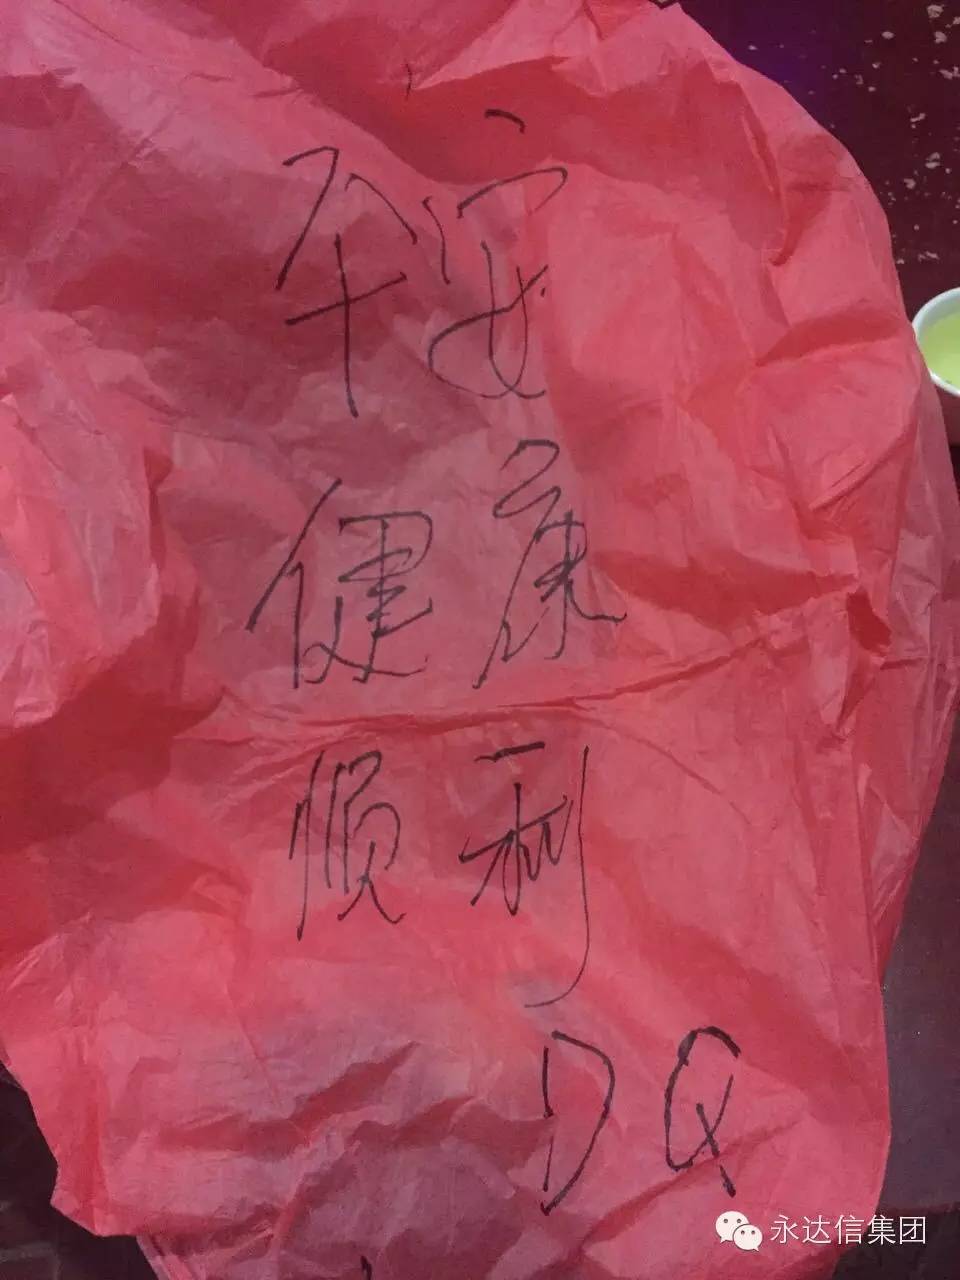 平安
健康
顺利
DQ
永达信集团